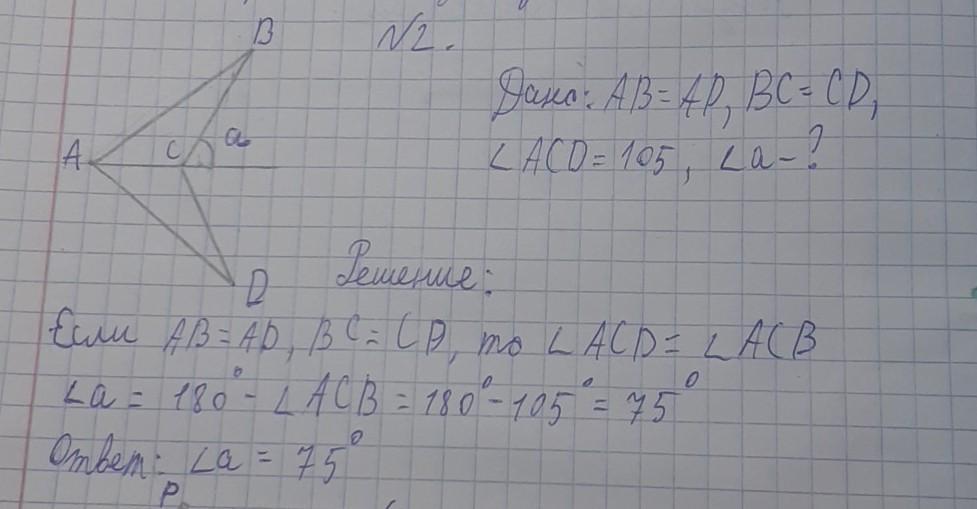 B
N2.
Дано: AB = AD, BC = CD,
∠ACD = 105, ∠a - ?
A C a
D
Решение:
Если AB = AD, BC = CD, то ∠ACD = ∠ACB
∠a = 180° - ∠ACB = 180° - 105° = 75°
Ответ: ∠a = 75°
P